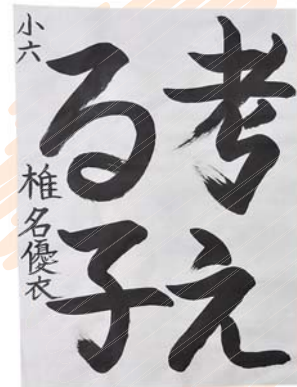 考え
る子
小六
椎名優衣